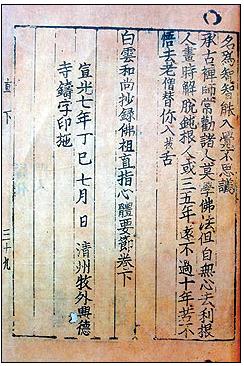 名爲智智能入覺不思議
承古禪師常勸諸人莫學佛法但自無心去利根
人畫時解脫鈍根人或三五年遠不過十年若不
悟去老僧替你入拔舌
白雲和尚抄錄佛祖直指心體要節卷下
宣光七年丁巳七月 日 清州牧外興德
寺鑄字印施
直下 三十九